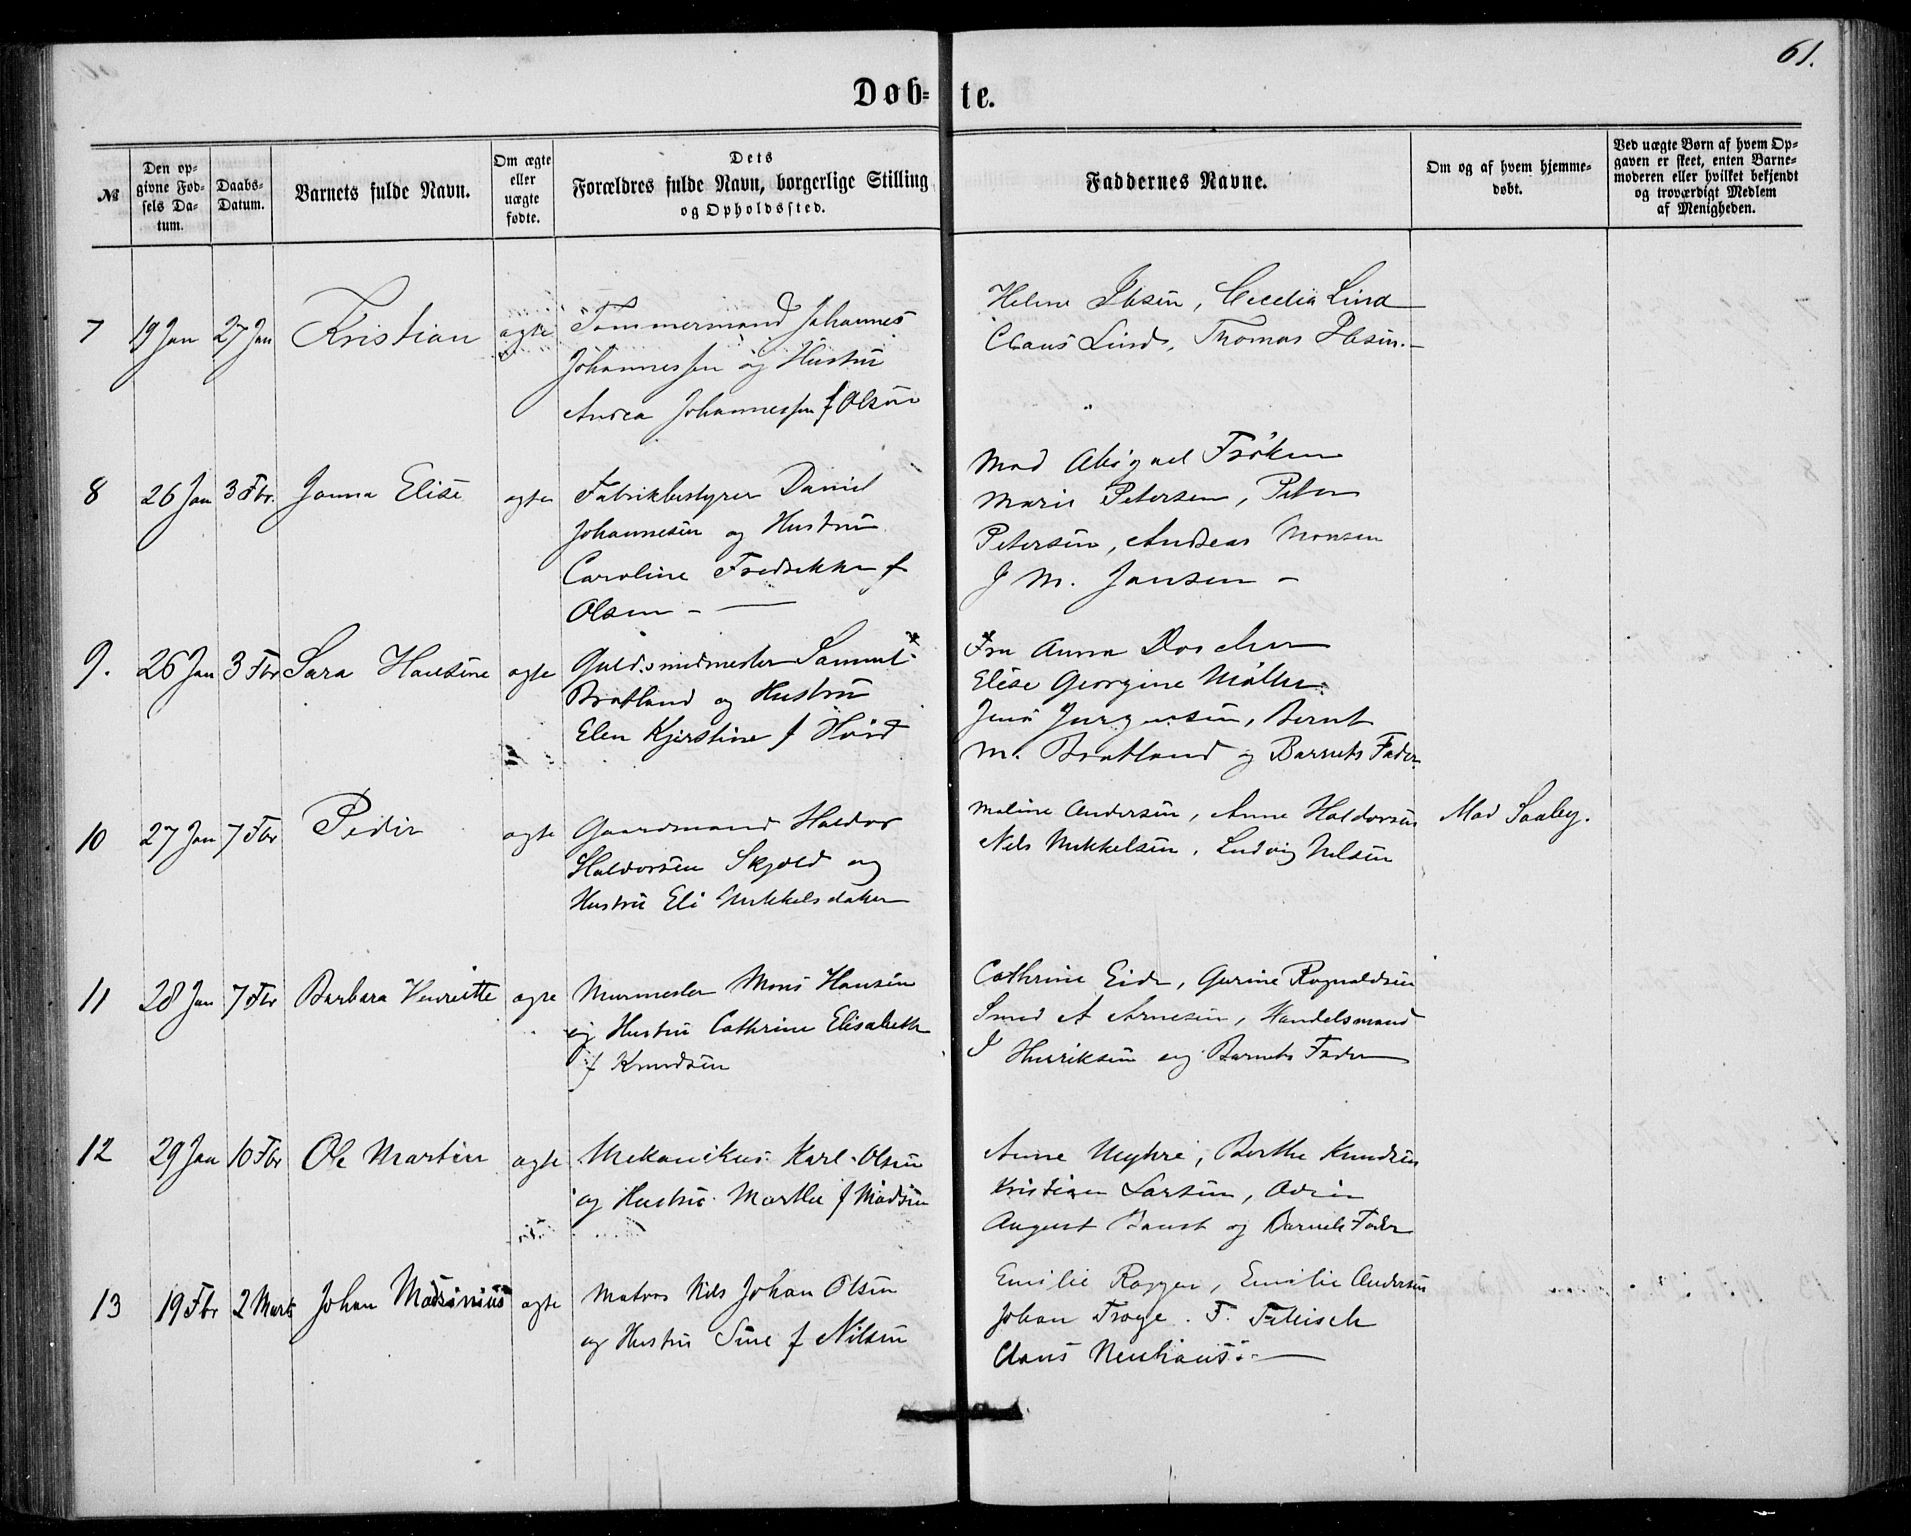 61.
Døb-te.
№
Den op-
givne Fød-
sels Da-
tum.
Daabs-
Datum.
Barnets fulde Navn.
Om ægte
eller
uægte
fødte.
Dets
Forældres fulde Navn, borgerlige Stilling
og Opholdssted.
Faddernes Navne.
Om og af hvem hjemme-
døbt.
Ved uægte Børn af hvem Op-
gaven er skeet, enten Barne-
moderen eller hvilket bekjendt
og troværdigt Medlem
af Menigheden.
7 19 Jan 27 Jan Kristian ægte Tømmermand Johannes
Johannessen og Hustru
Andrea Johannessen f Olsen
Helene Ibsen, Cecelia Lind
Claus Lind, Thomas Ibsen.
8 26 Jan 3 Fbr. Janna Elise ægte Fabrikbestyrer Daniel
Johannesen og Hustru
Caroline Fredrikke f
Olsen –
Mad Abigael Frøken
Marie Petersen, Peter
Petersen, Andreas Monsen
J M. Jansen –
9. 26 Jan 3 Fbr Sara Hansine ægte Guldsmedmester Samuel
Bratland og Hustru
Elen Kjerstine f
Fru Anna
Elise Georgine Møller.
Jens Jurgensen, Bernt
M. Bratland og Barnets Fader
10 27 Jan 7 Fbr Peder ægte Gaardmand Haldor
Haldorsen Skjold og
Hustru Eli Mikkelsdatter
Maline Andersen, Anne Haldorsen
Nils Mikkelsen, Ludvig Nilsen
Mad Saaby.
11 28 Jan 7 Fbr Barbara Henriette ægte Murmester Mons Hansen
og Hustru Cathrine Elisabeth
f Knudsen
Cathrine Eide, Gurine Rognaldsen
Smed A Arnesen, Handelsmand
J Henriksen og Barnets Fader
12 29 Jan 10 Fbr Ole Martin ægte Mekanikus Karl Olsen
og Hustru Marthe f Madsen
Anne Myhre, Berthe Knudsen
Kristian Larsen,
August og Barnets Fader
13 19 Fbr 2 Marts Johan Madsinius ægte Matros Nils Johan Olsen
og Hustru Sine f Nilsen
Emilie Rogge, Emilie Andersen
Johan Troye. F.
Claus Neuhaus.